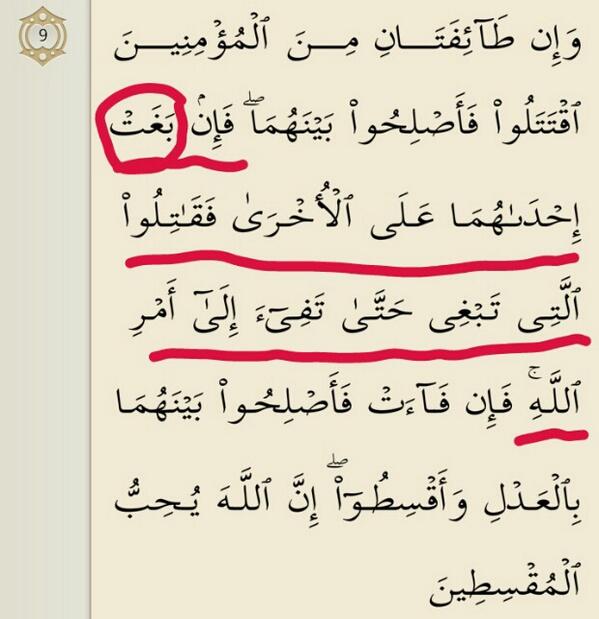 9
وَإِن طَآئِفَتَانِ مِنَ ٱلْمُؤْمِنِينَ
ٱقْتَتَلُوا۟ فَأَصْلِحُوا۟ بَيْنَهُمَا ۖ فَإِنۢ بَغَتْ
إِحْدَىٰهُمَا عَلَى ٱلْأُخْرَىٰ فَقَٰتِلُوا۟
ٱلَّتِى تَبْغِى حَتَّىٰ تَفِىٓءَ إِلَىٰٓ أَمْرِ
ٱللَّهِ ۚ فَإِن فَآءَتْ فَأَصْلِحُوا۟ بَيْنَهُمَا
بِٱلْعَدْلِ وَأَقْسِطُوٓا۟ ۖ إِنَّ ٱللَّهَ يُحِبُّ
ٱلْمُقْسِطِينَ